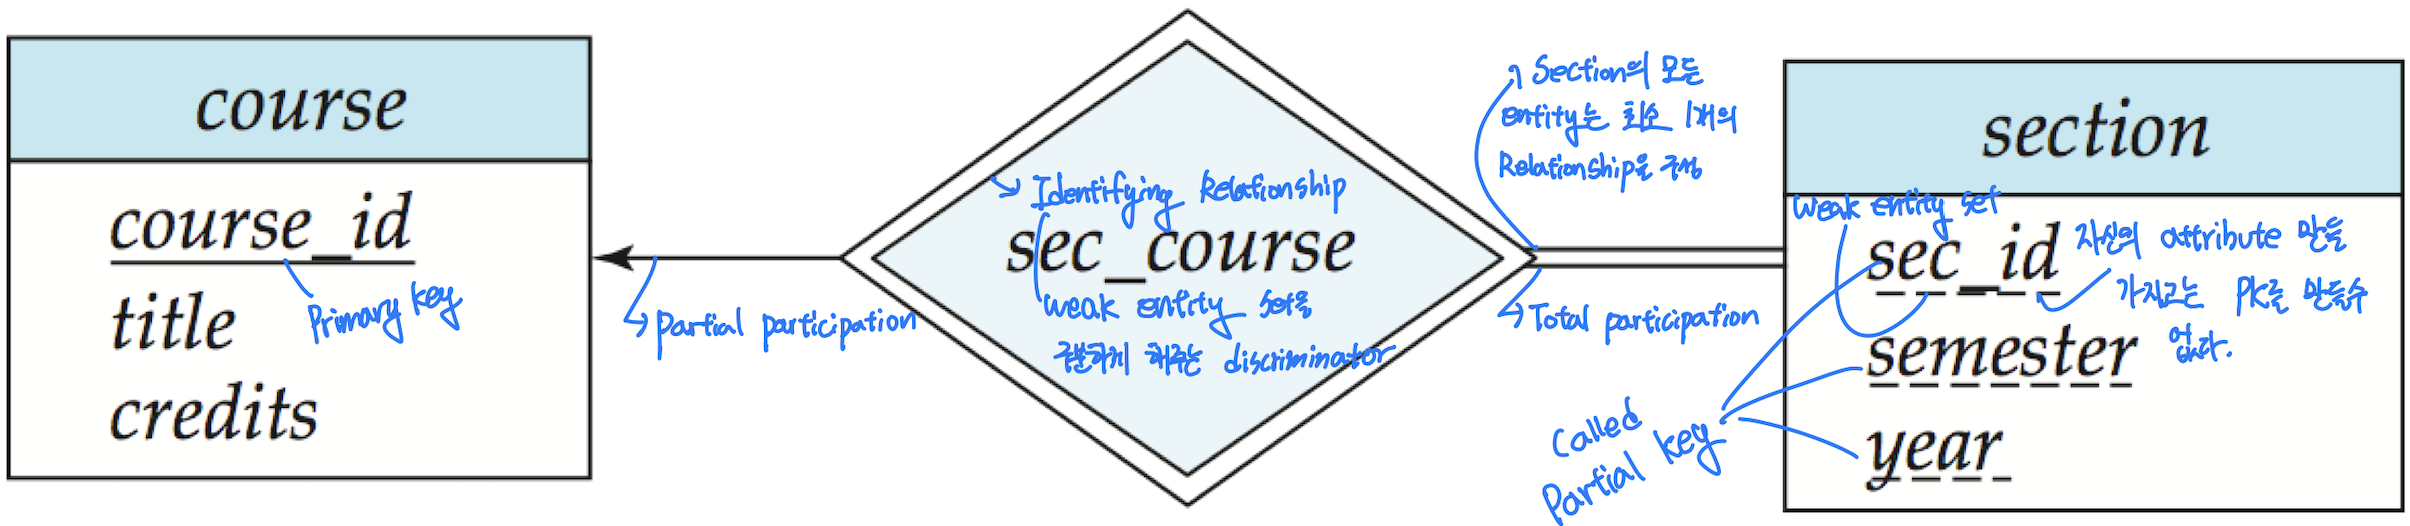 course
course_id
title
credits
Primary key
Partial participation
Identifying Relationship
sec_course
weak entity set을
구분하게 해주는 discriminator
Section의 모든
entity는 최소 1개의
Relationship을 구성
Total participation
section
weak entity set
sec_id
자신의 attribute 만들
가지고는 PK를 만들수
없다.
semester
year
Called
Partial key